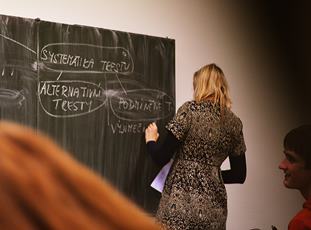 SYSTEMATIKA TRESTŮ
ALTERNATIVNÍ
TRESTY
PODMÍNĚNÉ T
VÝJIMEČ